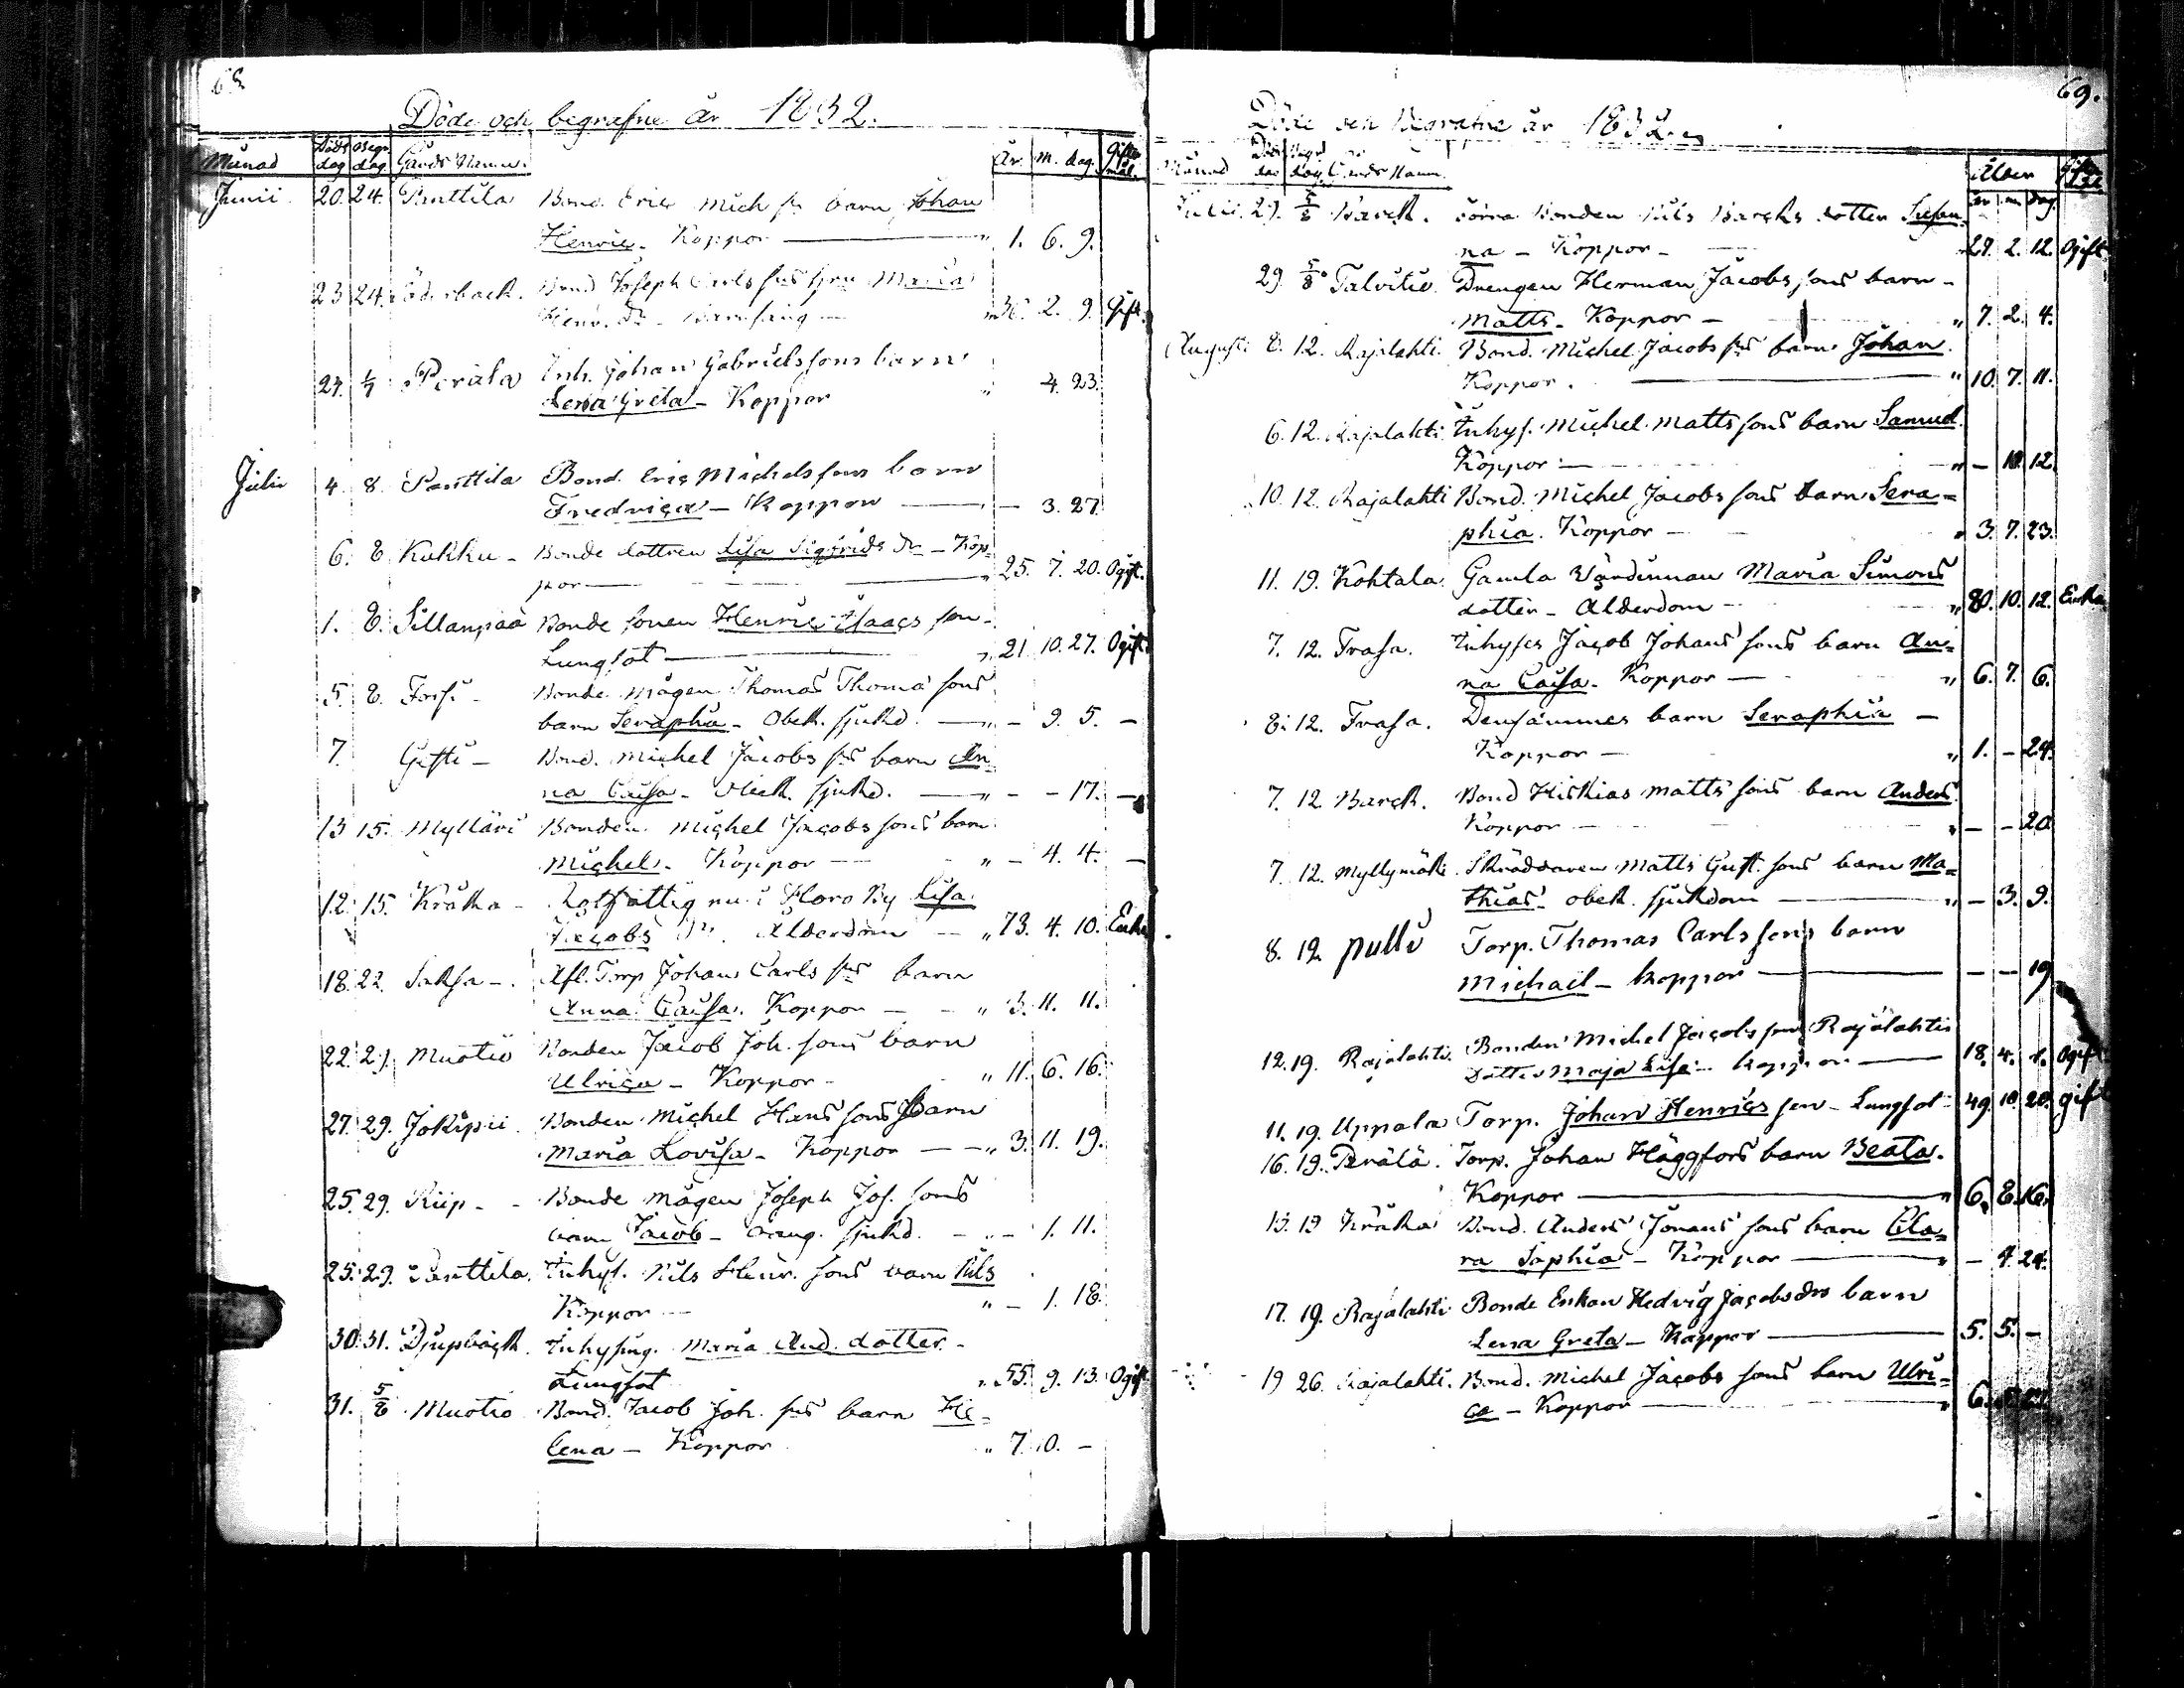 68
Döde och begrafne år 1832.
Månad Döds dag Begr. dag Gårds Namn. År. M. dag. Gifte mål.
Junii 20. 24. Panttila Bond. Eric Mich. sns barn Johan
Henric - Koppor — " 1. 6. 9.
23 24. Öderback. Bond. Joseph Carls sns hru Maria
Henr. dr - Barnsäng — " 36. 2. 9. Gift.
24. 1/7 Perälä Inh. Johan Gabriels sons barn
Lena Greta - Koppor " 4. 23.
Julii 4. 8. Panttila Bond. Eric Michels sons barn
Fredrica - Koppor — — 3. 27.
6. 8. Kukku - Bonde dottren Lisa Sigfrids dr - Kop=
por — " 25. 7. 20. Ogift.
1. 8. Sillanpää Bonde sonen Henric Isaacs son -
Lungsot — " 21. 10. 27. Ogift.
5. 8. Forsi - Bonde mågen Thomas Thomæ sons
barn Seraphia - Obek. sjukd. — " - 9. 5. -
7. Gifti - Bond. Michel Jacobs sns barn An=
na Caisa - Obek. sjukd. — " - - 17. -
13 15. Mylläri Bonden Michel Jacobs sons barn
Michel - Koppor — " - 4. 4. -
12. 15. Kråka - Rotfattig nu i Horo By Lisa
Jacobs Dr. Ålderdom — " 73. 4. 10. Enka
18. 22. Saksa - Afl. Torp. Johan Carls sns barn
Anna Caisa. Koppor — " 3. 11. 11.
22. 29. Muotio Bonden Jacob Joh. sons barn
Ulrica - Koppor - " 11. 6. 16.
27. 29. Jokipii Bonden Michel Hans sons barn
Maria Lovisa - Koppor — " 3. 11. 19.
25. 29. Riip - Bonde mågen Joseph Jos. sons
barn Jacob - sjukd. - " - 1. 11.
25. 29. Panttila. Inhys. Nils Henr. sons barn Nils
Koppor — " - 1. 18.
30. 31. Djupbäck. Inhysing. Maria And. dotter -
Lungsot " 55. 9. 13. Ogift
31. 5/8 Muotio Bond. Jacob Joh. sns barn He=
lena - Koppor " 7. 10. -
69.
Döde och Begrafne år 1832.
Månad Döds dag Begr. dag Gårds Namn. Ålder Gifte mål
år m dag
Julii. 29. 5/8 Barck. Förra Bonden Nils Barcks dotter Susan
na - Koppor - 29. 2. 12. Ogift
29. 5/8 Talvitie. Drengen Herman Jacobs sons barn -
Matts - Koppor - " 7. 2. 4.
Augusti 8. 12. Rajalahti. Bond. Michel Jacobs sns barn Johan.
Koppor. — " 10. 7. 11.
6. 12. Rajalahti Inhys. Michel Matts sons barn Samuel.
Koppor — " - 10. 12.
10. 12. Rajalahti Bond. Michel Jacobs sons barn Sera=
phia. Koppor — " 3. 7. 23.
11. 19. Kohtala. Gamla Värdinnan Maria Simons
dotter - Ålderdom - " 80. 10. 12. Enka
7. 12. Frasa. Inhyses Jacob Johans sons barn An=
na Caisa. Koppor — " 6. 7. 6.
8. 12. Frasa. Densammes barn Seraphia -
Koppor — " 1. - 24.
7. 12. Barck. Bond Hiskias Matts sons barn Anders
Koppor — " - - 20
7. 12. Myllymäki Skräddaren Matts Gust. sons barn Ma=
thias. obek. sjukdom — " - 3. 9.
8. 12. Pulli Torp. Thomas Carls sons barn
Michael - koppor — — — 19
12. 19. Rajalahti. Bonden Michel Jacobs sons Rajalahtis
Dotter Maja Lisa - koppor — 18. 4. Ogift
11. 19. Uppala Torp. Johan Henrics son - Lungsot - 49. 10. 20. gift
16. 19. Perälä. Torp. Johan Häggfors barn Beata.
Koppor — " 6. 8. 16.
13. 19 Kråka Bond. Anders Johans sons barn Cla=
ra Sophia - Koppor — " - 4. 24.
17. 19. Rajalahti Bonde Enkan Hedvig Jacobs drs barn
Lena Greta - Koppor — 5. 5. -
19 26. Rajalahti. Bond. Michel Jacobs sons barn Ulri=
ca - Koppor — " 6.